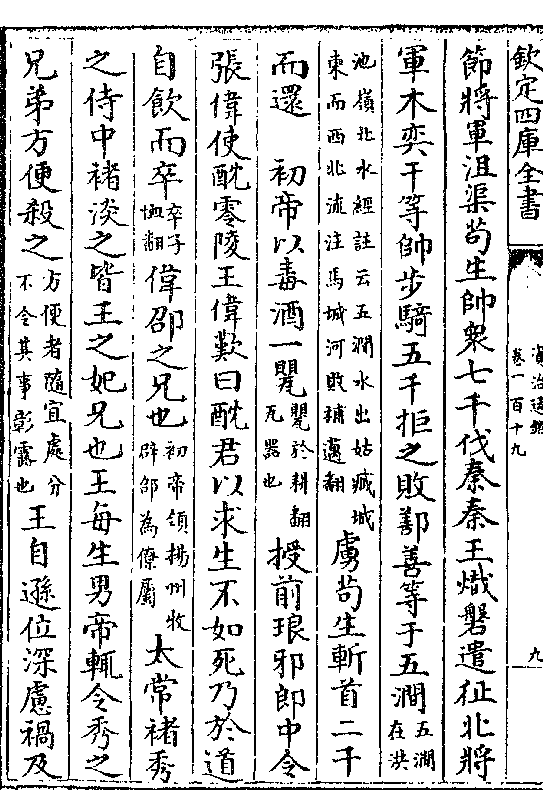 欽定四庫全書
資治通鑑
卷一百十九
九
節將軍沮渠苟生帥衆七千伐秦秦王熾磐遣征北將
軍木奕干等帥步騎五千拒之敗鄯善等于五澗五澗在洪
池嶺北水經註云五澗水出姑臧城東而西北流注馬城河敗補邁翻虜苟生斬首二千
而還　初帝以毒酒一甖甖於耕翻瓦器也授前琅邪郎中令
張偉使酖零陵王偉歎曰酖君以求生不如死乃於道
自飲而卒卒子恤翻偉邵之兄也初帝領揚州牧辟邵為僚屬太常褚秀
之侍中褚淡之皆王之妃兄也王每生男帝輒令秀之
兄弟方便殺之方便者隨宜處分不令其事彰露也王自遜位深慮禍及